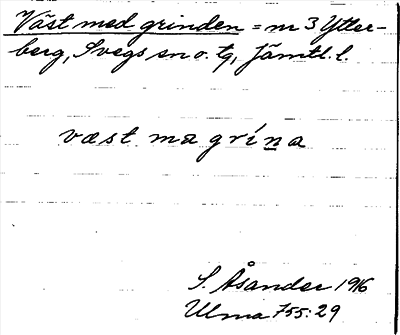 Väst med grinden = nr 3 Ytter-
berg, Svegs sn o. tg, Jämtl. l.
væst ma grína
S. Åsander 1916
Ulma 755:29